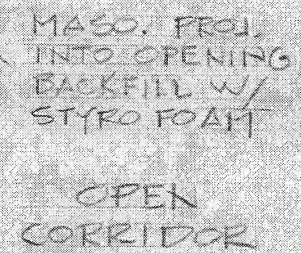 MASO. PROJ.
INTO OPENING
BACKFILL W/
STYRO FOAM
OPEN
CORRIDOR